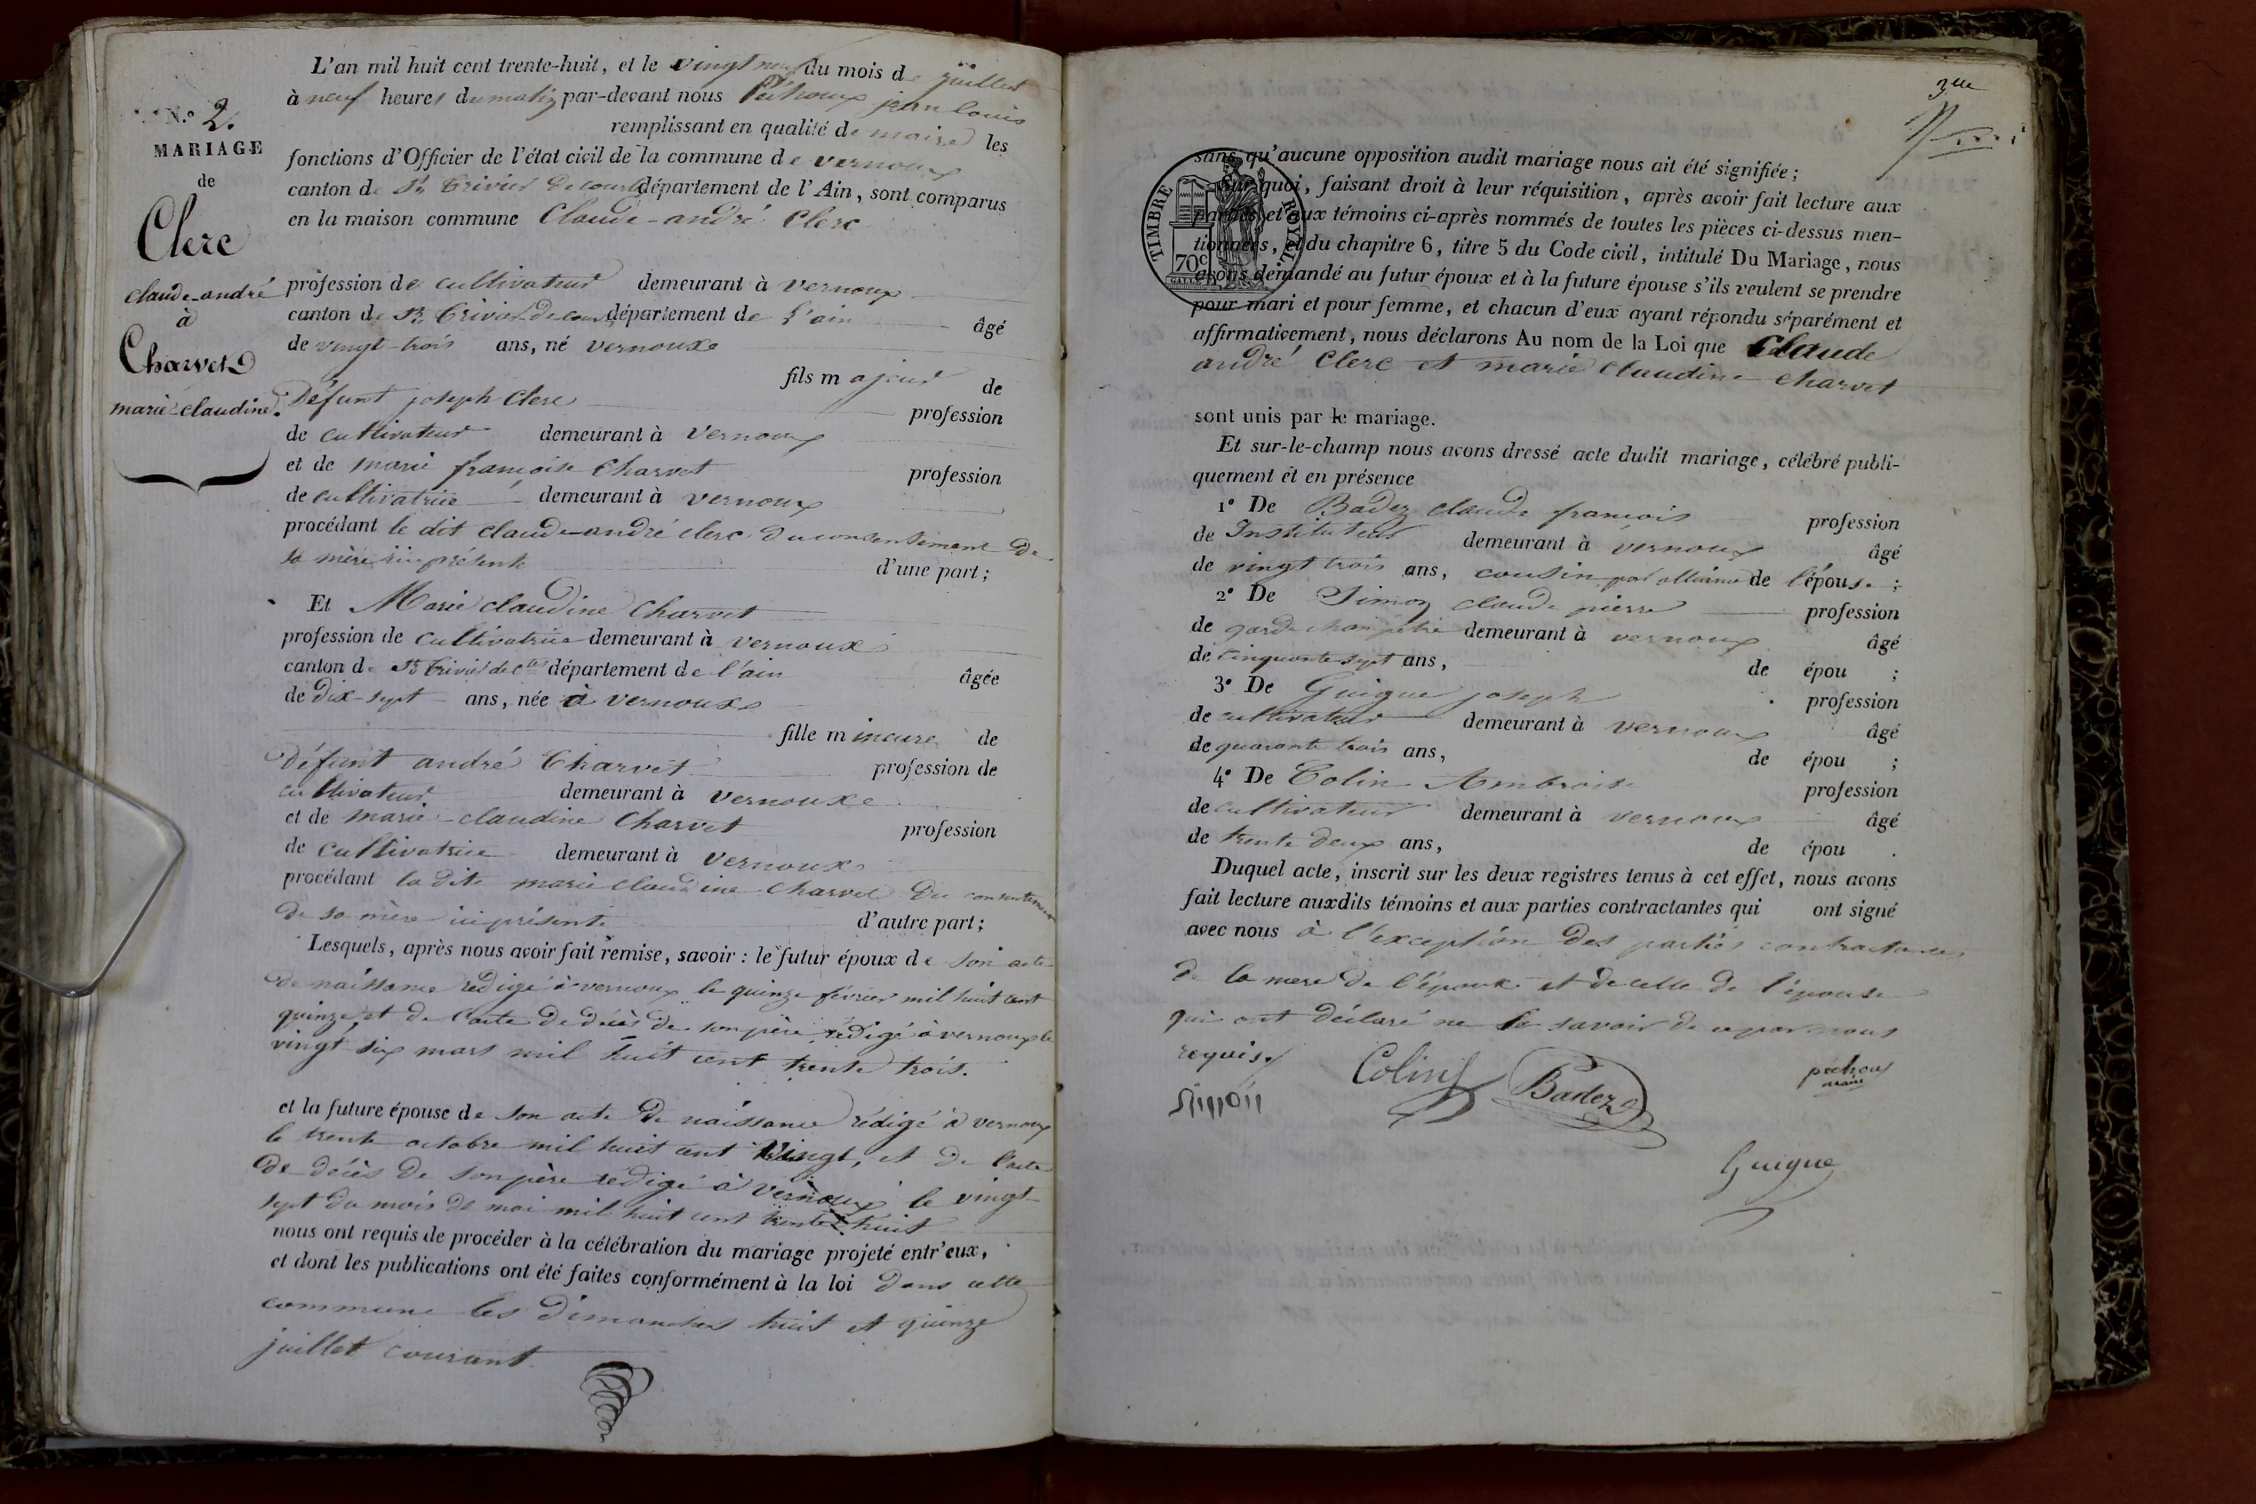 N.° 2.
MARIAGE
de
Clerc
claude-andré
à
Charvet
marie-claudine.
L'an mil huit cent trente-huit, et le vingt neuf du mois de juillet
à neuf heures du matin par-devant nous Péchoux jean louis
remplissant en qualité de maire les
fonctions d'Officier de l'état civil de la commune de vernoux
canton de St Trivier De courtes département de l'Ain, sont comparus
en la maison commune Claude-andré Clerc
profession de cultivateur demeurant à vernoux
canton de St Trivier De courtes département de l'ain âgé
de vingt-trois ans, né vernoux
fils majeur de
Défunt joseph Clerc profession
de cultivateur demeurant à vernoux
et de marie françoise Charvet profession
de cultivatrice demeurant à vernoux
procédant le dit claude-andré clerc du consentement de
sa mère ici présente d'une part;
Et Marie claudine Charvet
profession de cultivatrice demeurant à vernoux
canton de St Trivier de Ctes département de l'ain âgée
de dix-sept ans, née à vernoux
fille mineure de
Défunt andré Charvet profession de
cultivateur demeurant à vernoux
et de marie-claudine Charvet profession
de cultivatrice demeurant à vernoux
procédant la dite marie claudine Charvet du consentement
de sa mère ici présente d'autre part;
Lesquels, après nous avoir fait remise, savoir: le futur époux de son acte
de naissance rédigé à vernoux le quinze février mil huit cent
quinze et de l'acte de décès de son père rédigé à vernoux le
vingt six mars mil huit cent trente trois.
et la future épouse de son acte de naissance rédigé à vernoux
le trente octobre mil huit cent vingt, et de l'acte
de décès de son père rédigé à vernoux le vingt-
sept du mois de mai mil huit cent trente huit
nous ont requis de procéder à la célébration du mariage projeté entr'eux,
et dont les publications ont été faites conformément à la loi dans cette
commune les dimanches huit et quinze
juillet courant
3me
TIMBRE ROYAL
70c
sans qu'aucune opposition audit mariage nous ait été signifiée;
Sur quoi, faisant droit à leur réquisition, après avoir fait lecture aux
parties et aux témoins ci-après nommés de toutes les pièces ci-dessus men-
tionnées, et du chapitre 6, titre 5 du Code civil, intitulé Du Mariage, nous
avons demandé au futur époux et à la future épouse s'ils veulent se prendre
pour mari et pour femme, et chacun d'eux ayant répondu séparément et
affirmativement, nous déclarons Au nom de la Loi que Claude
andré Clerc et marie claudine charvet
sont unis par le mariage.
Et sur-le-champ nous avons dressé acte dudit mariage, célébré publi-
quement et en présence
1° De Badez claude françois profession
de Instituteur demeurant à vernoux âgé
de vingt trois ans, cousin par alliance de l'épouse ;
2° De Simon claude pierre profession
de garde champêtre demeurant à vernoux âgé
de cinquante sept ans, de épou ;
3° De Guigue joseph profession
de cultivateur demeurant à vernoux âgé
de quarante trois ans, de épou ;
4° De Colin Ambroise profession
de cultivateur demeurant à vernoux âgé
de trente deux ans, de épou .
Duquel acte, inscrit sur les deux registres tenus à cet effet, nous avons
fait lecture auxdits témoins et aux parties contractantes qui ont signé
avec nous à l'exception des parties contractantes
de la mere de l'époux et de celle de l'épouse
qui ont déclaré ne le savoir de ce par nous
requis
Colin Badez péchoux
maire
Simon
Guigue